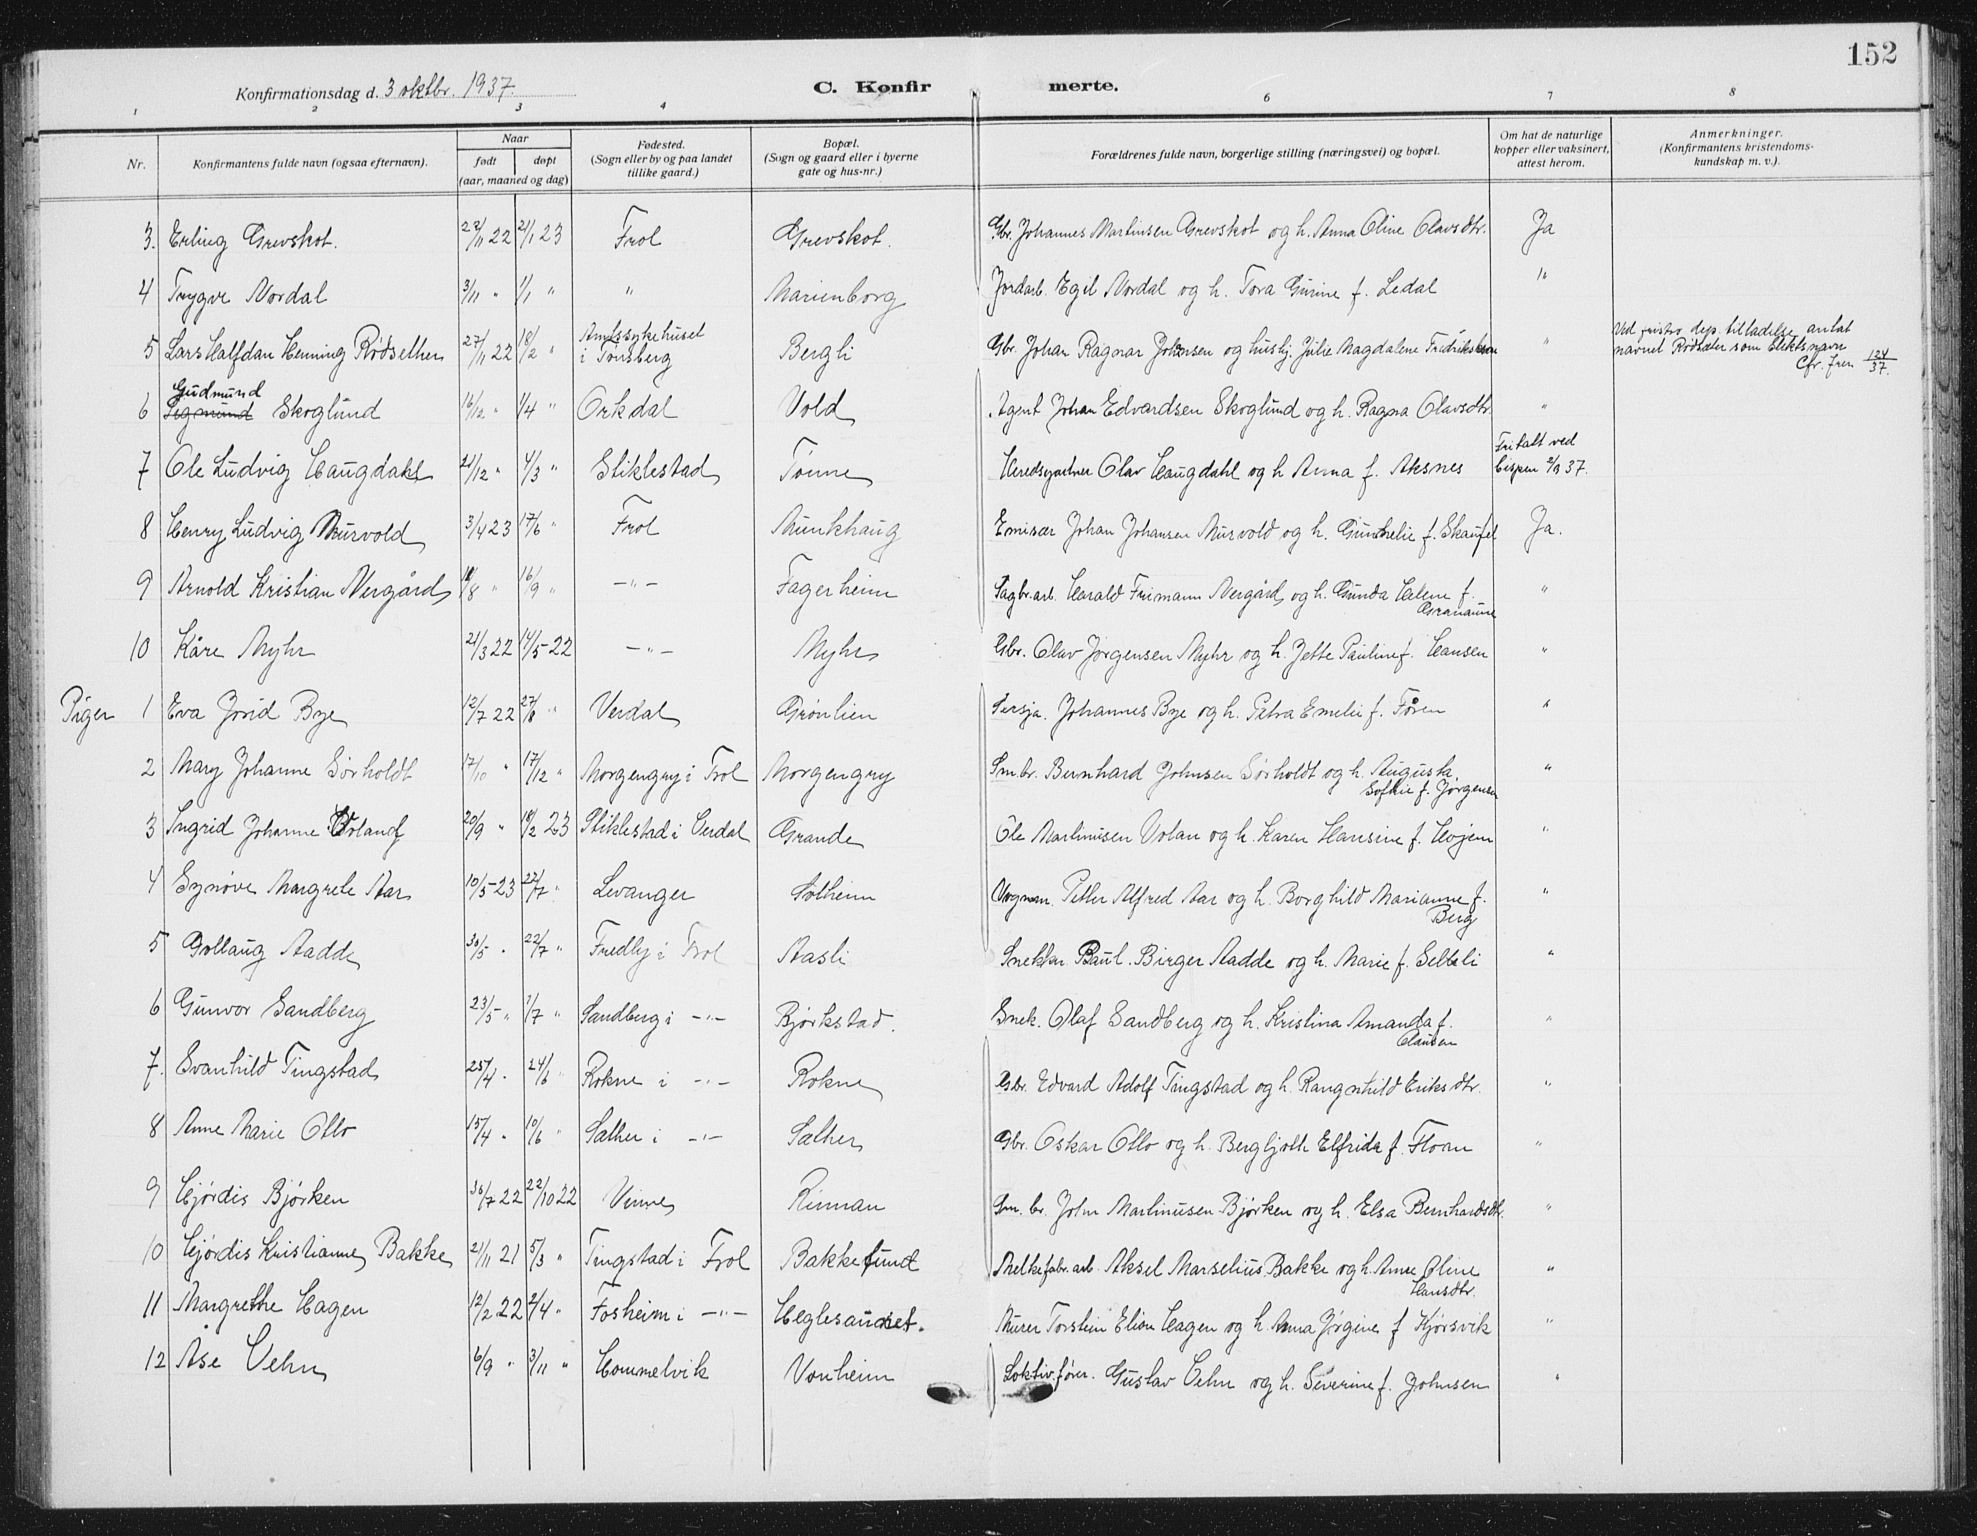 152
Konfirmationsdag d. 3 oktbr. 1937.
C. Konfirmerte.
1 2 3 4 6 7 8
Nr. Konfirmantens fulde navn (ogsaa efternavn). Naar født døpt (aar, maaned og dag) Fødested. (Sogn eller by og paa landet tillike gaard.) Bopæl. (Sogn og gaard eller i byerne gate og hus-nr.) Forældrenes fulde navn, borgerlige stilling (næringsvei) og bopæl. Om hat de naturlige kopper eller vaksinert, attest herom. Anmerkninger. (Konfirmantens kristendomskundskap m. v.).
3. Erling Grevskot. 22/11 22 21/1 23 Frol Grevskot. Gbr. Johannes Martinsen Grevskot og h. Anna Oline Olavsdtr. Ja
4 Trygve Nordal 3/11 " 1/1 " " Marienborg Jordarb. Egil Nordal og h. Tora Gurine f. Ledal "
5 Lars Halfdan Henning Rødsether 27/11 22 18/2 " Amtssykehuset i Tønsberg Bergli Gbr. Johan Ragnar Johansen og hustj. Julie Magdalene Fredriksen " Ved justis dep. tilladelse antat navnet Rødsæter som slektsnavn Cfr. Jnr. 124/37.
6 Gudmund Sigmund Skoglund 16/12 " 1/4 " Orkdal Vold Agent Johan Edvardsen Skoglund og h. Ragna Olavsdtr. "
7 Ole Ludvig Haugdahl 21/12 " 4/3 " Stiklestad Tønne Heredsgartner Olav Haugdahl og h Anna f. Aksnes Fritatt ved bispen 2/9 37.
8 Henry Ludvig Murvold 3/4 23 17/6 " Frol Munkhaug Emisær Johan Johansen Murvold og h. Gunhelie f. Skaufel Ja.
9 Arnold Kristian Nergård 18/8 " 16/9 " -"- Fagerheim Sagbr.arb. Harald Frimann Nergård og h. Gunda Helene f. Granaune "
10 Kåre Myhr 21/3 22 14/5 22 -"- Myhr Gbr. Olav Jørgensen Myhr og h. Jette Pauline f. Hansen "
Piger 1 Eva Jorid Bye 12/7 22 27/8 " Verdal Grønlien Sersja. Johannes Bye og h. Petra Emelie f. Føren "
2 Mary Johanne Sørholdt 17/10 " 17/12 " Morgengry i Frol Morgengry Smbr. Bernhard Johnsen Sørholdt og h. Augusta Sofhie f. Jørgensen "
3 Ingrid Johanne Voland 20/9 " 18/2 23 Stiklestad i Verdal Grande Ole Martinusen Volan og h. Karen Hansine f. Højem "
4 Synøve Margrete Aar 10/5 23 22/7 " Levanger Solheim Vognm. Petter Alfred Aar og h. Borghild Marianne f. Berg "
5 Gollaug Aadde 30/5 " 22/7 " Fredly i Frol Aasli Snekker Paul Birger Aadde og h. Marie f. Selteli "
6 Gunvor Sandberg 23/5 " 1/7 " Sandberg i -"- Bjørkstad. Snek. Olaf Sandberg og h. Kristina Amanda f. Clausen "
7. Svanhild Tingstad 25/4 " 24/6 " Rokne i -"- Rokne Gbr. Edvard Adolf Tingstad og h. Rangnhild Eriksdtr. "
8 Anne Marie Otto 15/4 " 10/6 " Salher i -"- Salher Gbr. Oskar Otto og h. Bergljoth Elfrida f. Floan "
9 Hjørdis Bjørken 30/7 22 22/10 22 Vinne Rinnan Sm. br. John Martinusen Bjørken og h. Elsa Bernhardsdtr. "
10 Hjørdis Kristianne Bakke 21/11 21 5/3 " Tingstad i Frol Bakkelund Melkefabr. arb. Aksel Marselius Bakke og h. Anne Oline Hansdtr. "
11 Margrethe Hagen 12/2 22 2/4 " Fosheim i -"- Heglesaunet. Murer Torstein Elion Hagen og h. Anna Jørgine f Hjorsvik "
12 Åse Vehn 6/9 " 3/11 " Hommelvik Vonheim Loktiv.fører. Gustav Vehn og h. Severine f. Johnsen "